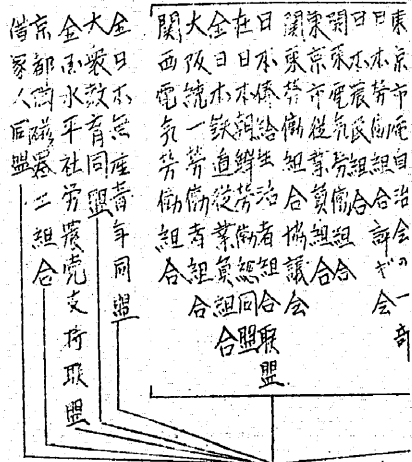 東京市電自治会の一部
日本労働組合評ギ会
日本農民組合
関東電気労働組合
東京市従業員組合
関東労働組合協議会
日本俸給生活者組合聯盟
在日本朝鮮労働総同盟
全日本鉄道従業員組合
大阪統一労働者組合
関西電気労働組合
全日本無産青年同盟
大衆教育同盟
全国水平社労農党支持聯盟
京都陶磁器工組合
借家人同盟